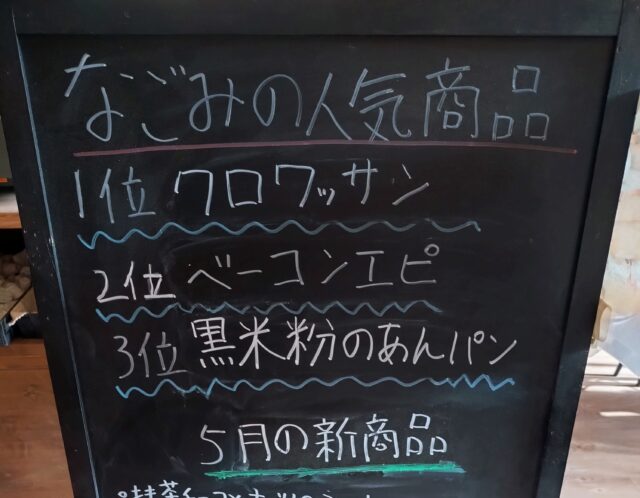 なごみの人気商品
1位 クロワッサン
2位 ベーコンエピ
3位 黒米粉のあんパン
5月の新商品